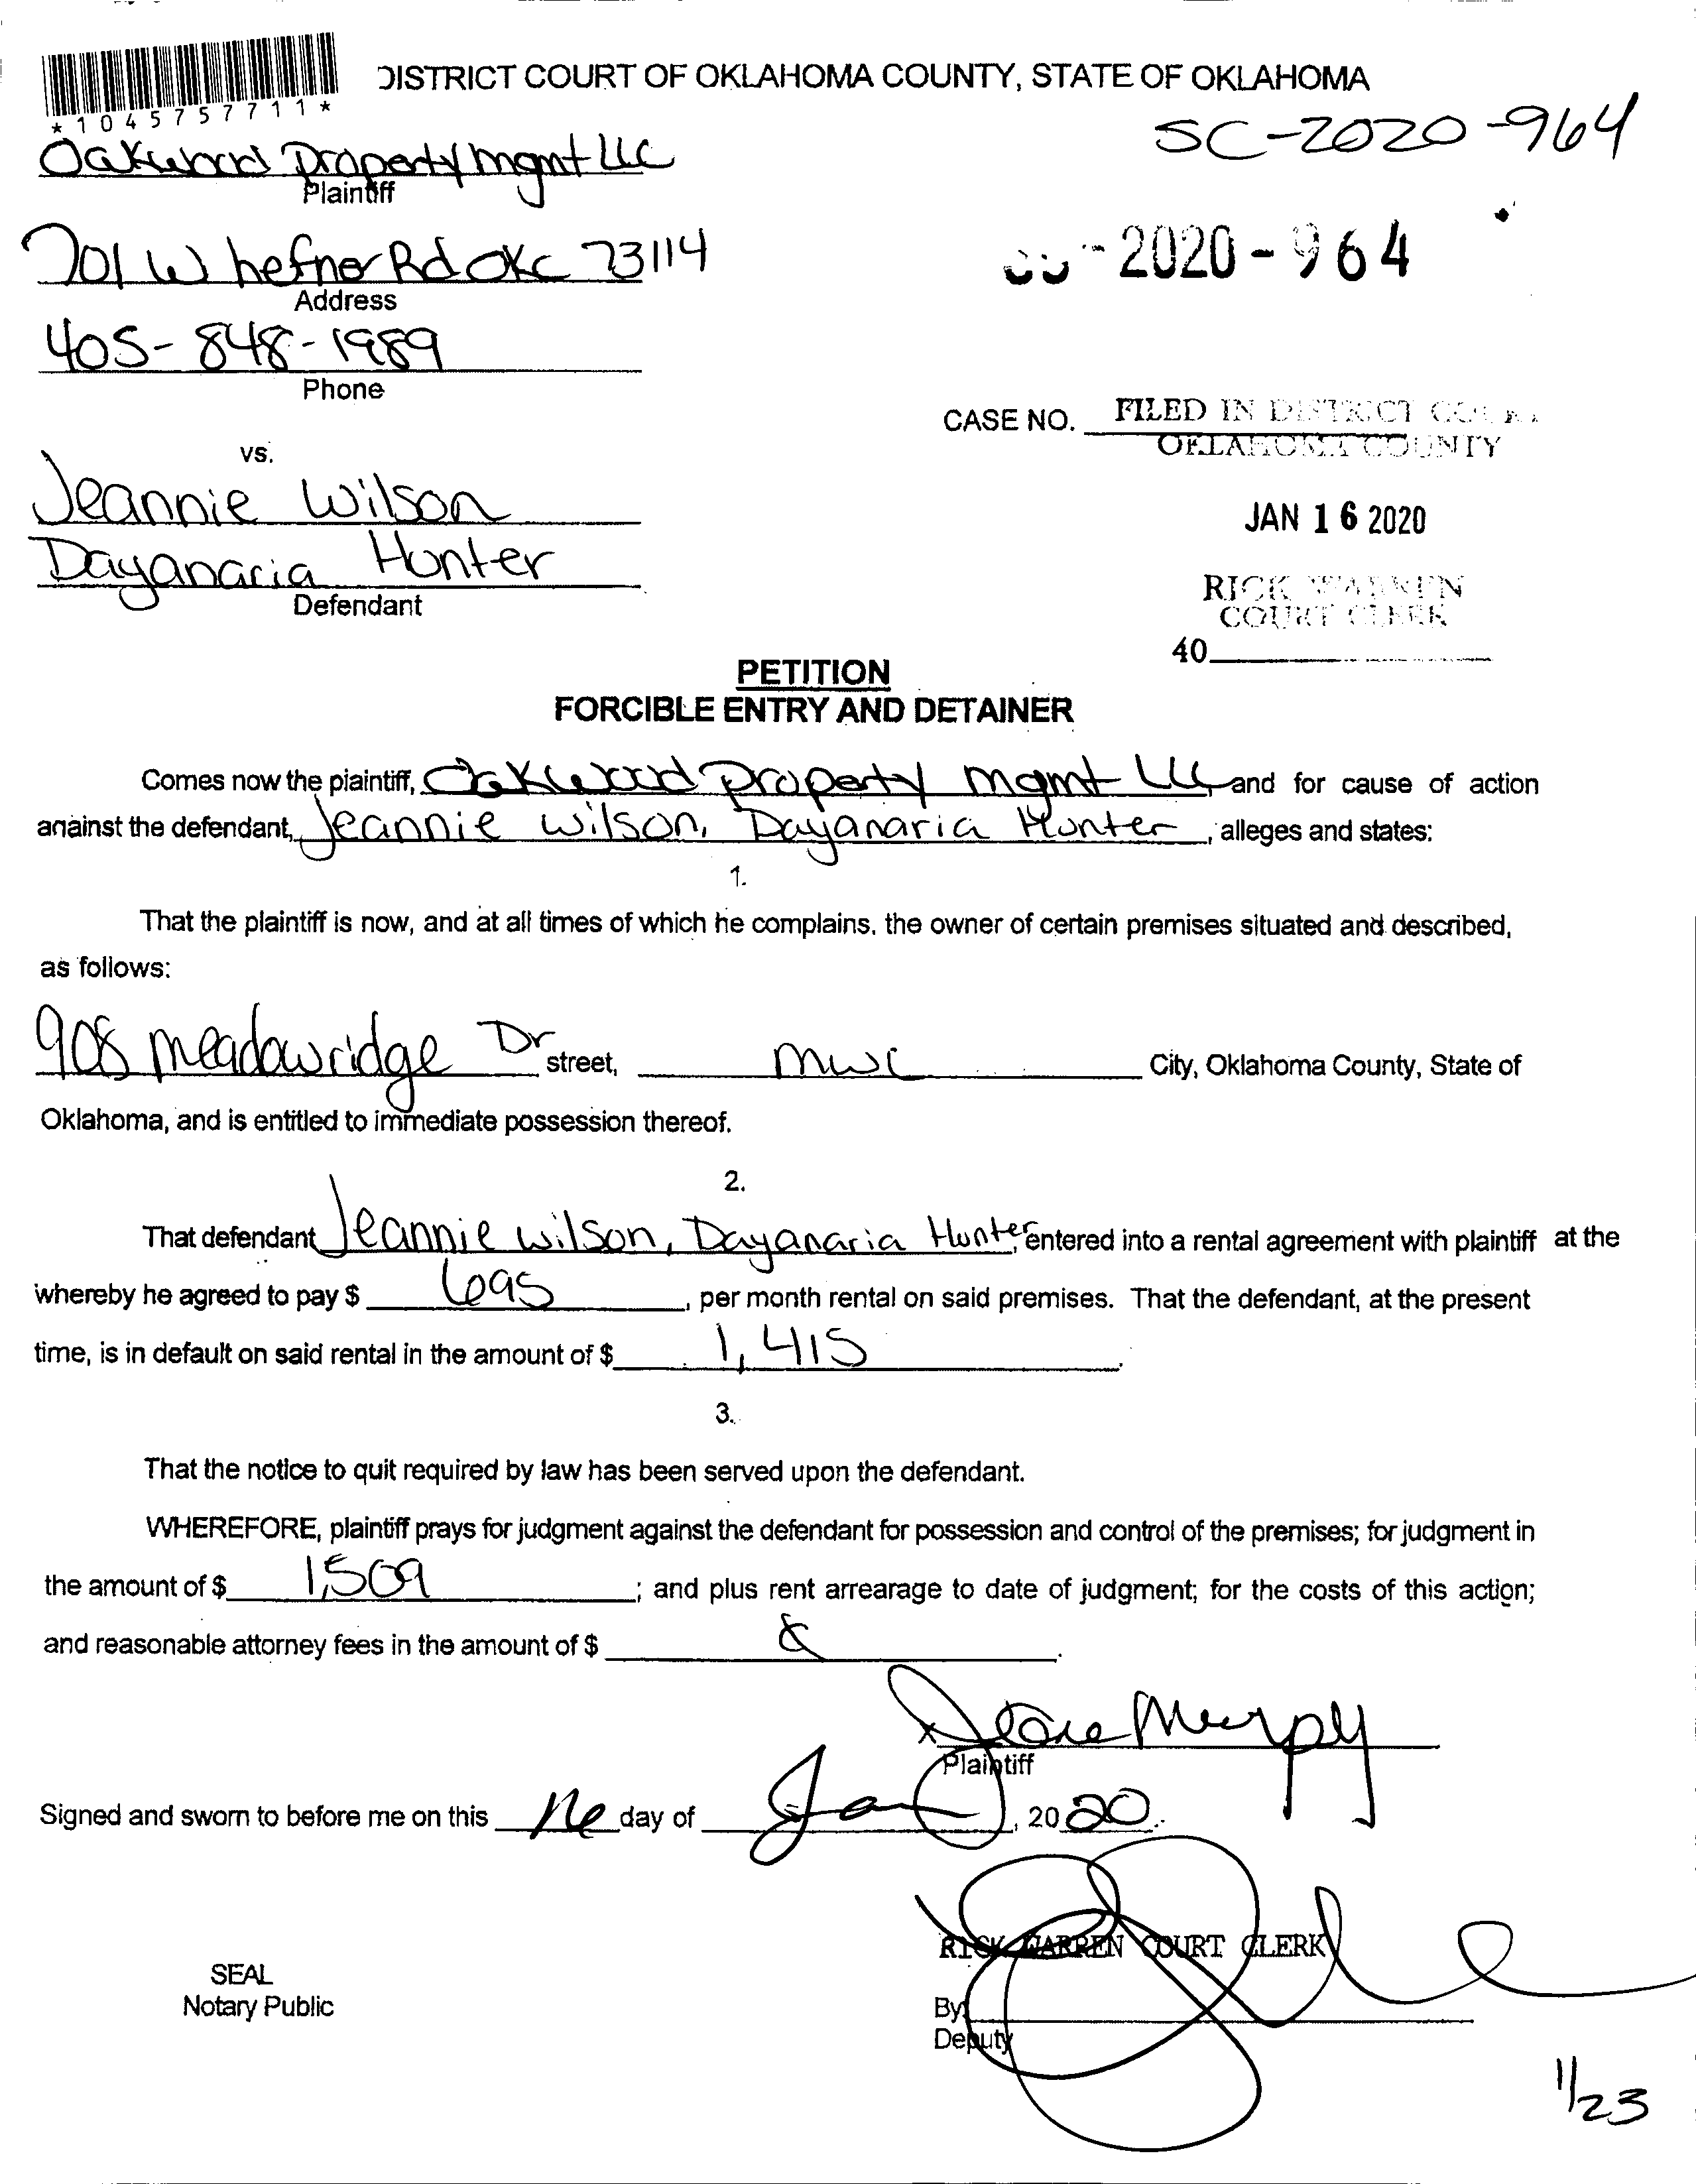 DISTRICT COURT OF OKLAHOMA COUNTY, STATE OF OKLAHOMA
*1045757711*
SC-2020-964
Oakwood Property mgmt LLC
Plaintiff
701 W hefner Rd OKC 73114
Address
-2020-964
405-848-1989
Phone
CASE NO. FILED IN DISTRICT COURT
OKLAHOMA COUNTY
vs.
Jeannie Wilson
JAN 16 2020
Dayanaria Hunter
Defendant
RICK WARREN
COURT CLERK
40
PETITION
FORCIBLE ENTRY AND DETAINER
Comes now the plaintiff, Oakwood property mgmt LLC, and for cause of action
against the defendant, Jeannie Wilson, Dayanaria Hunter, alleges and states:
1.
That the plaintiff is now, and at all times of which he complains, the owner of certain premises situated and described,
as follows:
908 meadowridge Dr street, mwc City, Oklahoma County, State of
Oklahoma, and is entitled to immediate possession thereof.
2.
That defendant Jeannie wilson, Dayanaria Hunter, entered into a rental agreement with plaintiff at the
whereby he agreed to pay $ 695, per month rental on said premises. That the defendant, at the present
time, is in default on said rental in the amount of $ 1,415.
3.
That the notice to quit required by law has been served upon the defendant.
WHEREFORE, plaintiff prays for judgment against the defendant for possession and control of the premises; for judgment in
the amount of $ 1,509; and plus rent arrearage to date of judgment; for the costs of this action;
and reasonable attorney fees in the amount of $ .
x Murpy
Plaintiff
Signed and sworn to before me on this 16 day of Jan, 2020.
RICK WARREN COURT CLERK
SEAL
Notary Public
By
Deputy
1/23